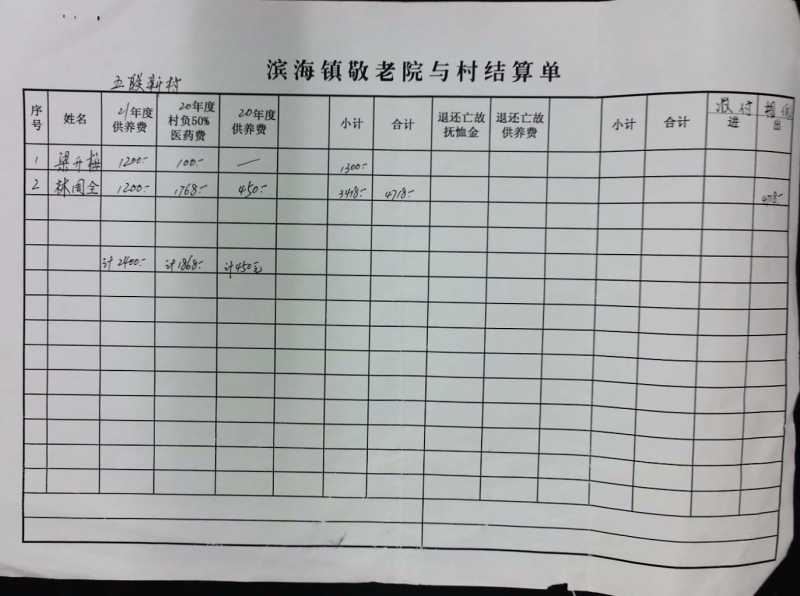 滨海镇敬老院与村结算单
五联新村
序号 姓名 21年度供养费 20年度村负50%医药费 20年度供养费 小计 合计 退还亡故抚恤金 退还亡故供养费 小计 合计 进 出
1 梁 梅 1200- 100- — 1300-
2 林周全 1200- 1768- 450- 3418- 4718- 4718-
计2400- 计1868- 计450元